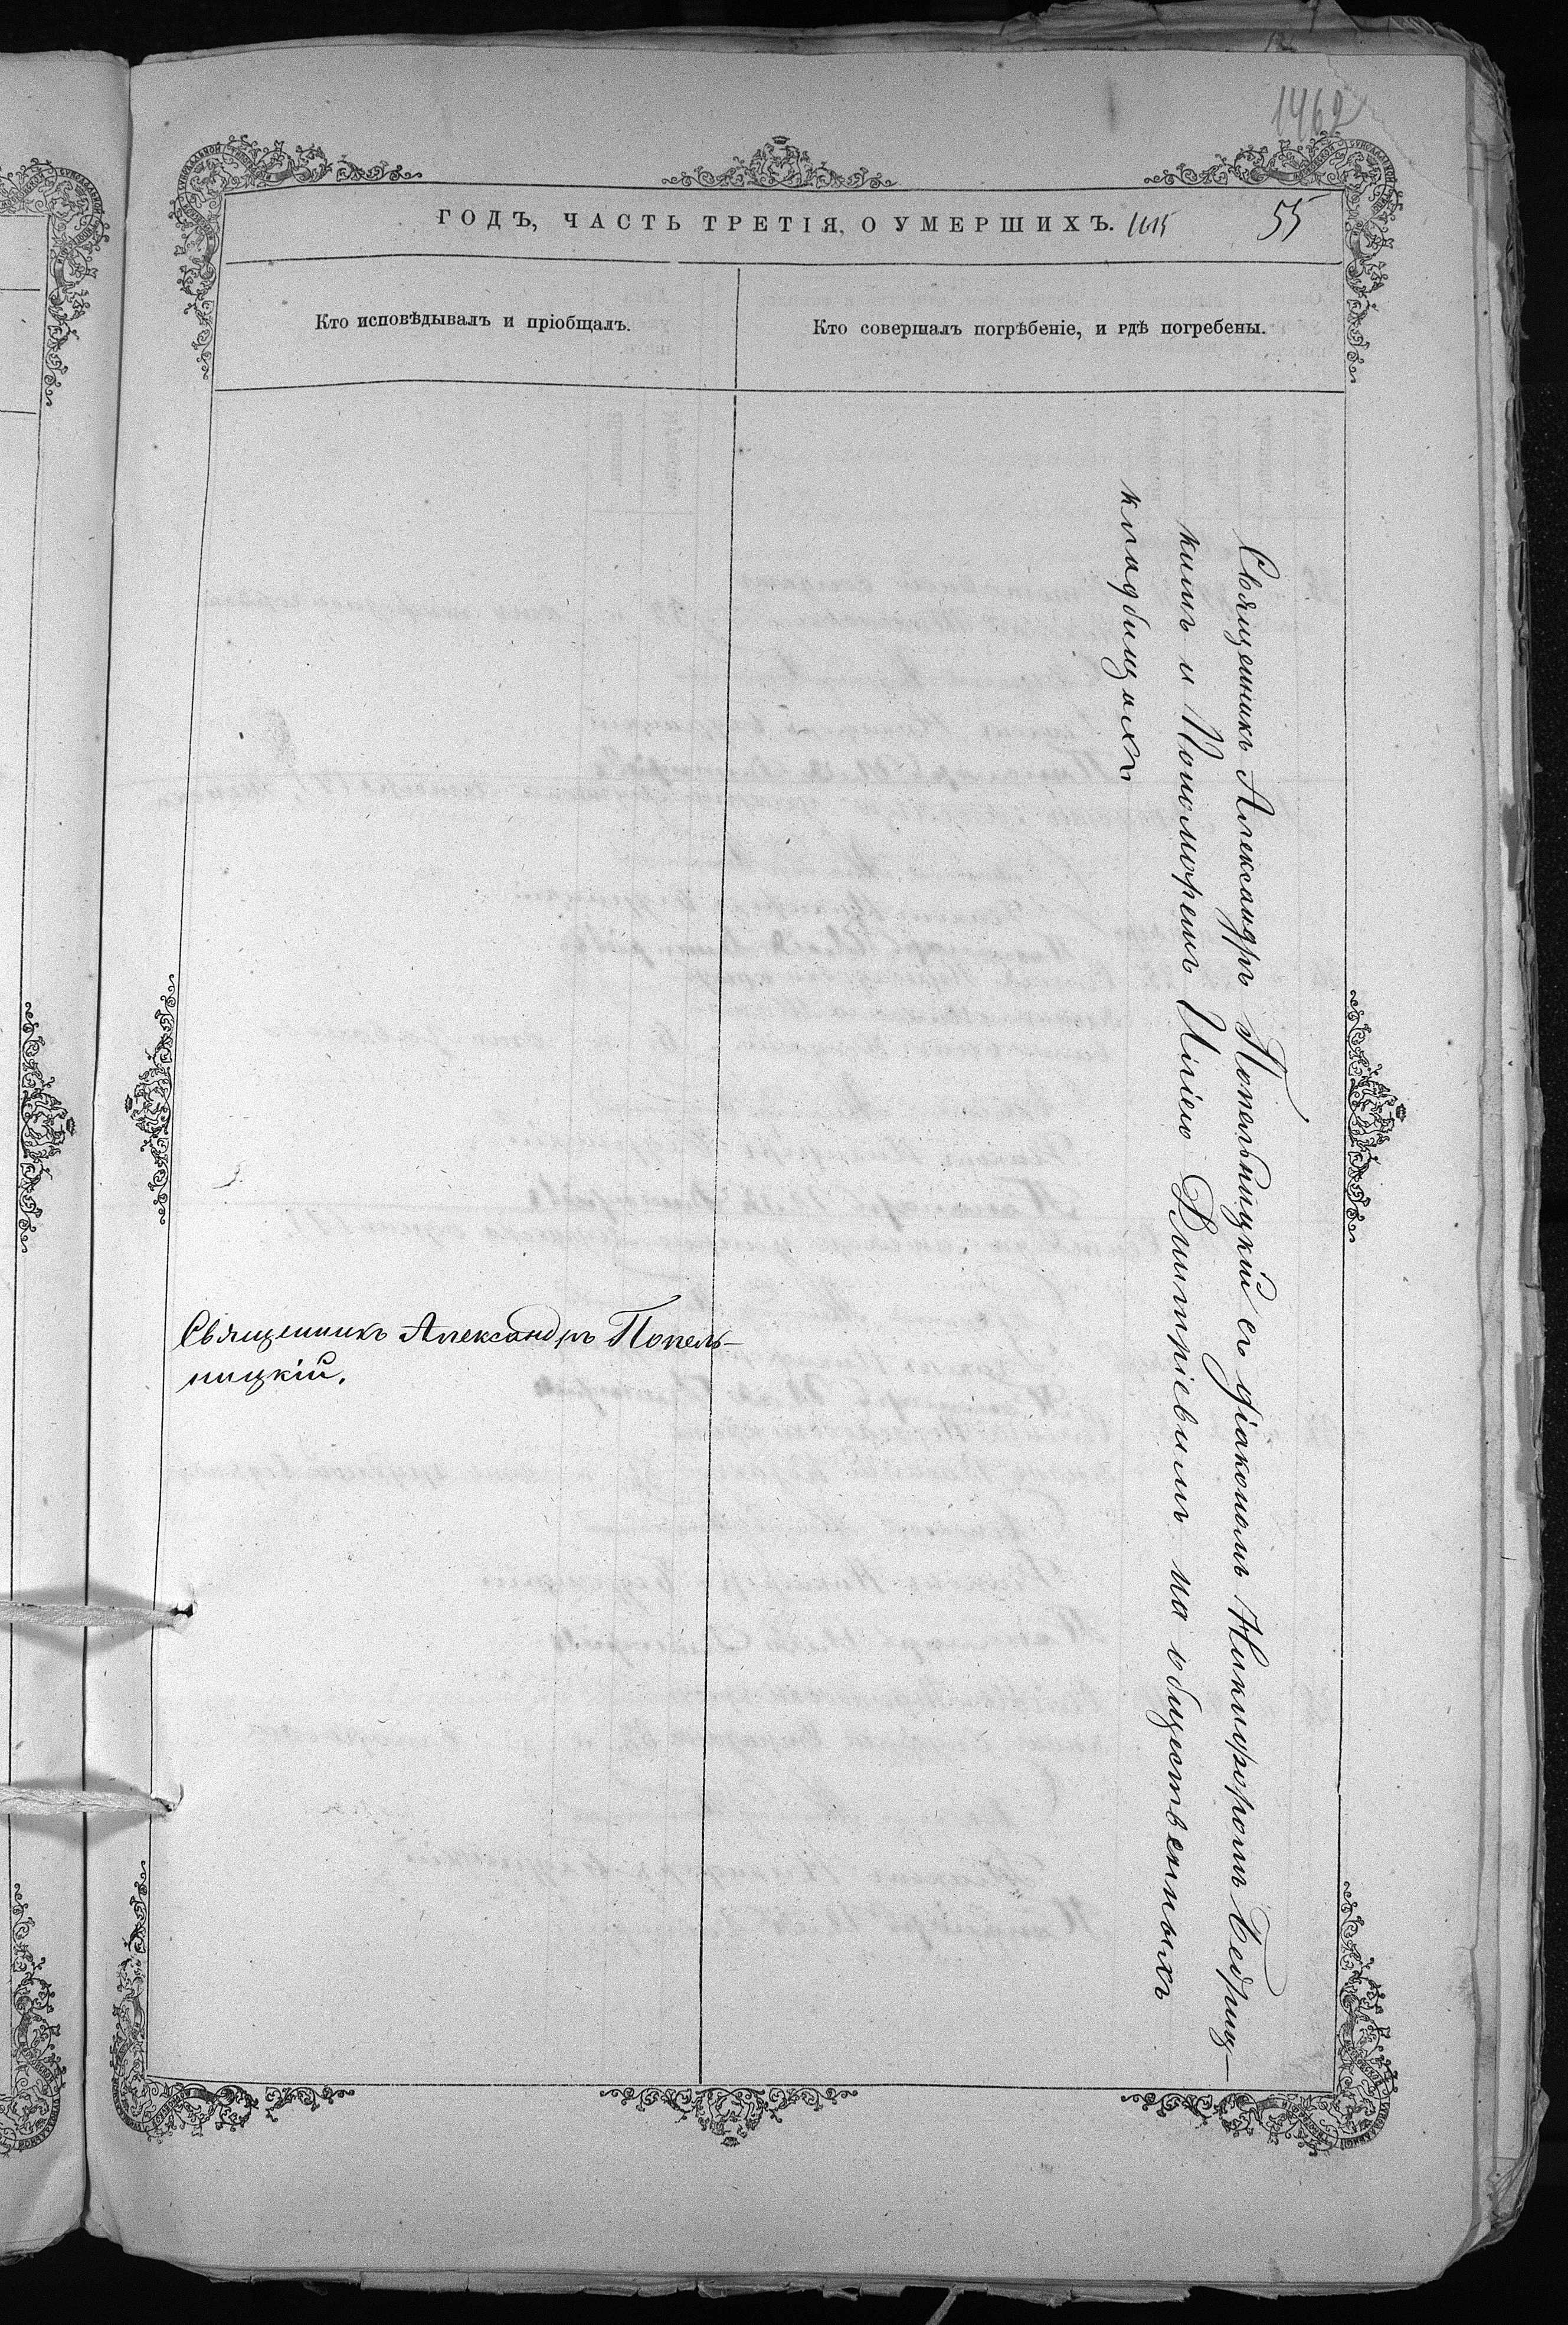 1462
ГОДЪ, ЧАСТЬ ТРЕТІЯ, О УМЕРШИХЪ.
55
Кто исповѣдывалъ и пріобщалъ.
Кто совершалъ погрѣбеніе, и гдѣ погребены.
Священникъ Александръ Попель-
ницкій.
Священникъ Александръ Попельницкій съ діакономъ Никифоромъ Бедриц-
кимъ и Пономоремъ Иліею Димтріевымъ на общественныхъ
кладбищахъ